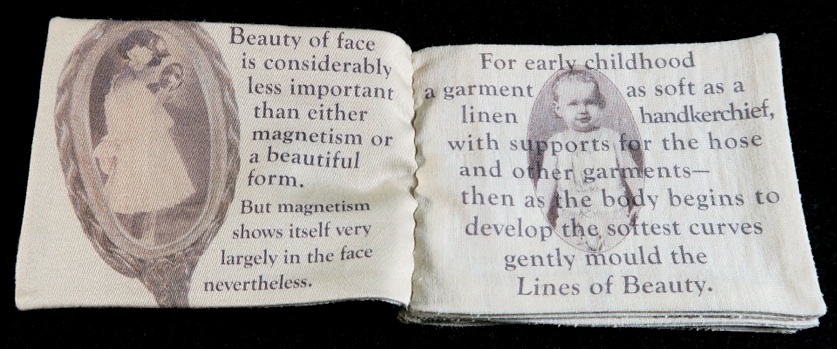 Beauty of face
is considerably
less important
than either
magnetism or
a beautiful
form.
But magnetism
shows itself very
largely in the face
nevertheless.
For early childhood
a garment as soft as a
linen handkerchief,
with supports for the hose
and other garments—
then as the body begins to
develop the softest curves
gently mould the
Lines of Beauty.